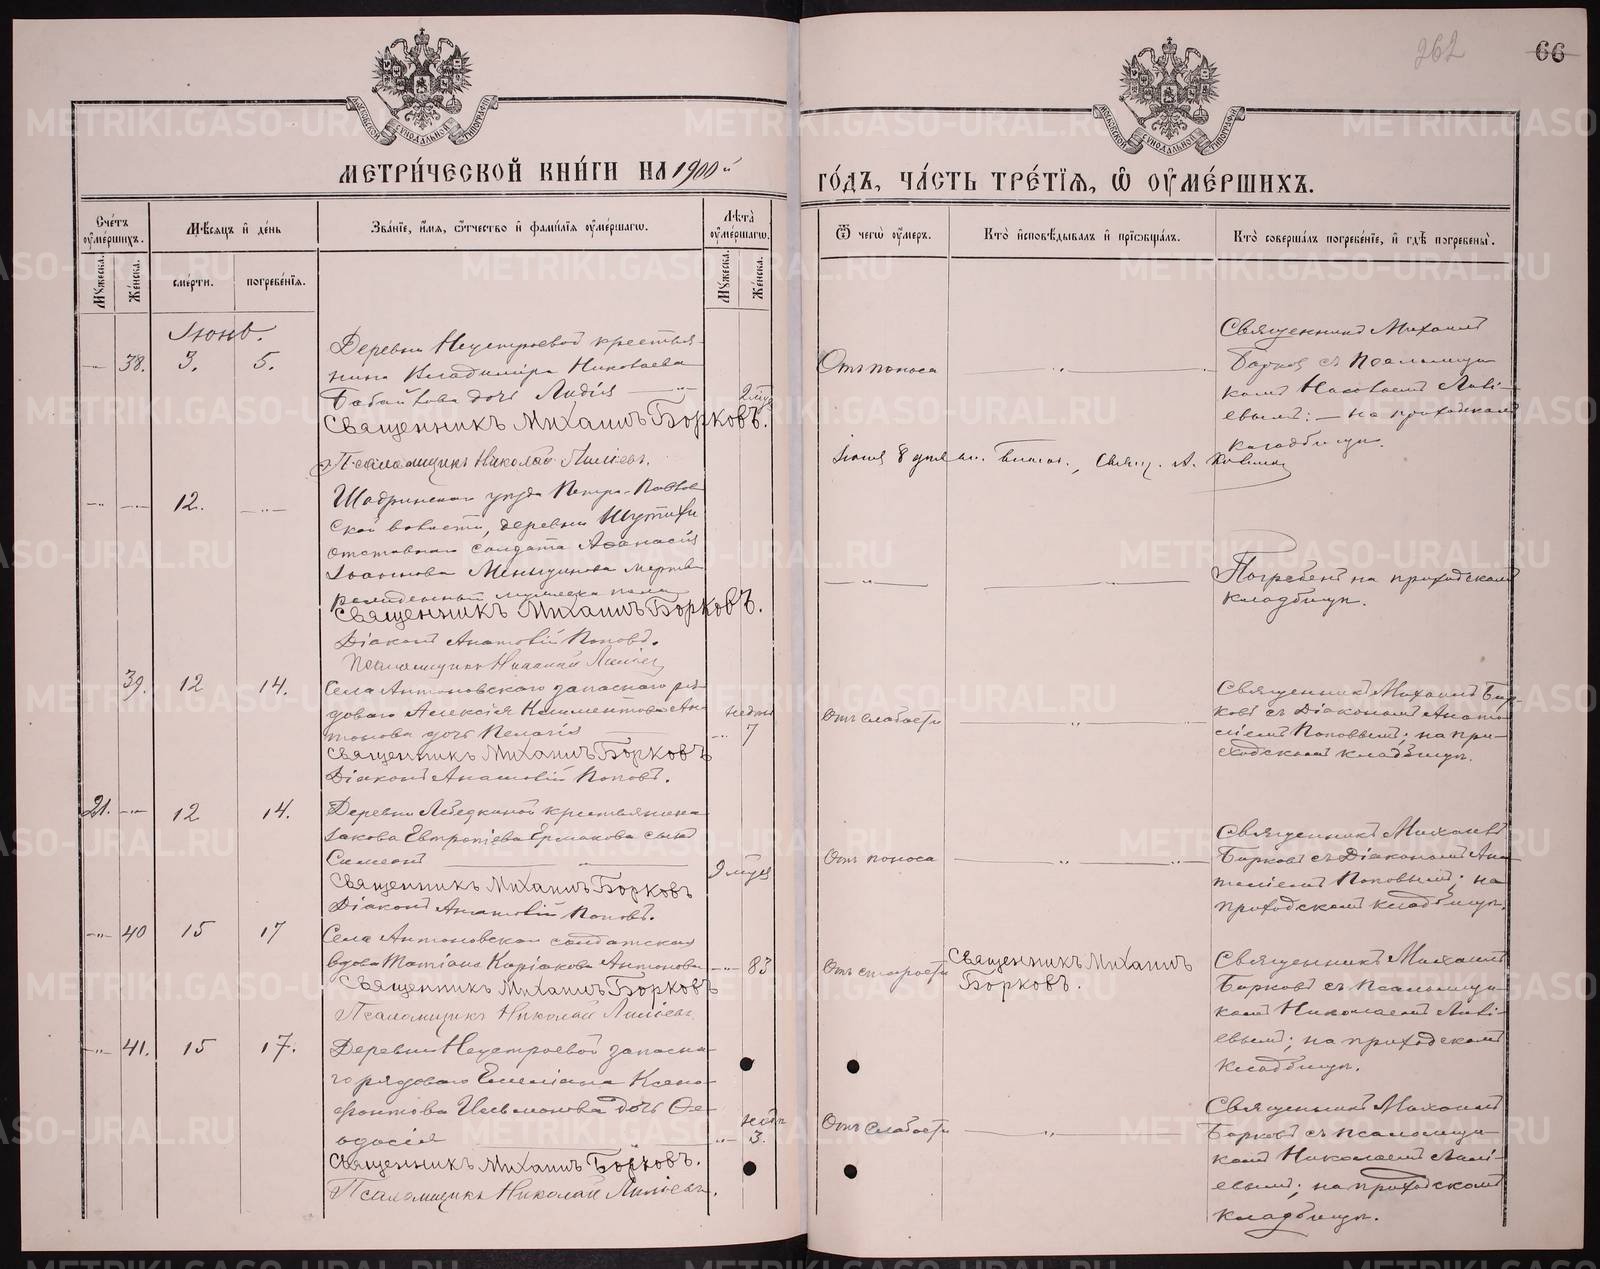 262
66
МЕТРИ́ЧЕСКОЙ КНИ́ГИ НА 1900й
ГО́ДЪ, ЧА́СТЬ ТРЕ́ТІѦ, Ѿ ОУМЕ́РШИХЪ.
Сче́тъ оумершихъ.
Мѣсяцъ и день
Званіе, имя, отчество и фамилія оумершагѡ.
Лѣта оумершагѡ.
Ѿ чегѡ оумеръ.
Кто исповѣдывалъ и пріѡбщалъ.
Кто совершалъ погребеніе, и гдѣ погребены.
Мужеска.
Женска.
смерти.
погребенія.
Мужеска.
Женска.
Іюнь.
38.
3.
5.
Деревни Неустроевой крестья-
нина Владиміра Николаева
дочь Лидія
2 мѣс
Священникъ Михаилъ Борковъ.
Псаломщикъ Николай
Отъ поноса
Священникъ Михаилъ
Борковъ съ Псаломщи-
комъ Николаемъ
евымъ: – на приходскомъ
кладбищѣ.
Іюня 8 дня
12.
Шадринскаго уѣзда Петро-Павлов
ской волости, деревни
отставнаго солдата Аѳанасія
Іоаннова Меньщикова мертво
рожденный мужеска пола
Священникъ Михаилъ Борковъ.
Діаконъ Анатолій Поповъ.
Псаломщикъ Николай
Погребенъ на приходскомъ
кладбищѣ.
39.
12
14.
Села Антоновскаго запаснаго ря-
доваго Алексія Климентова Ан-
тонова дочь Пелагія
недѣл
7
Священникъ Михаилъ Борковъ
Діаконъ Анатолій Поповъ.
Отъ слабости
Священникъ Михаилъ Бор-
ковъ съ Діакономъ Анато-
ліемъ Поповымъ; на при-
ходскомъ кладбищѣ.
21.
12
14.
Деревни Лебедкиной крестьянина
Іакова Евтропіева Ермакова сынъ
Симеонъ
9 мѣсяц
Священникъ Михаилъ Борковъ
Діаконъ Анатолій Поповъ.
Отъ поноса
Священникъ Михаилъ
Борковъ съ Діакономъ Ана-
толіемъ Поповымъ; на
приходскомъ кладбищѣ.
40
15
17
Села Антоновскаго солдатская
вдова Татіана Каріакова Антонова
83
Священникъ Михаилъ Борковъ
Псаломщикъ Николай
Отъ старости
Священникъ Михаилъ
Борковъ.
Священникъ Михаилъ
Борковъ съ Псаломщи-
комъ Николаемъ
евымъ; на приходскомъ
кладбищѣ.
41.
15
17.
Деревни Неустроевой запасна-
го рядоваго Емиліана Ксено-
фонтова дочь Ѳе-
одосія
недѣл
3.
Священникъ Михаилъ Борковъ.
Псаломщикъ Николай
Отъ слабости
Священникъ Михаилъ
Борковъ съ псаломщи-
комъ Николаемъ
евымъ; на приходскомъ
кладбищѣ.
METRIKI.GASO-URAL.RU